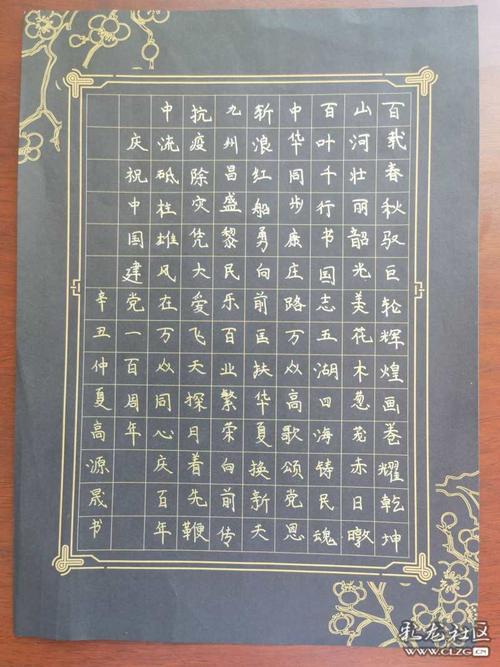 百载春秋驭巨轮辉煌画卷耀乾坤
山河壮丽韶光美花木葱茏赤日暾
百叶千行书国志五湖四海铸民魂
中华同步康庄路万众高歌颂党恩
斩浪红船勇向前匡扶华夏换新天
九州昌盛黎民乐百业繁荣向前传
抗疫除灾凭大爱飞天探月着先鞭
中流砥柱雄风在万众同心庆百年
庆祝中国建党一百周年
辛丑仲夏高源晟书
彩龙社区
WWW.CLZG.CN